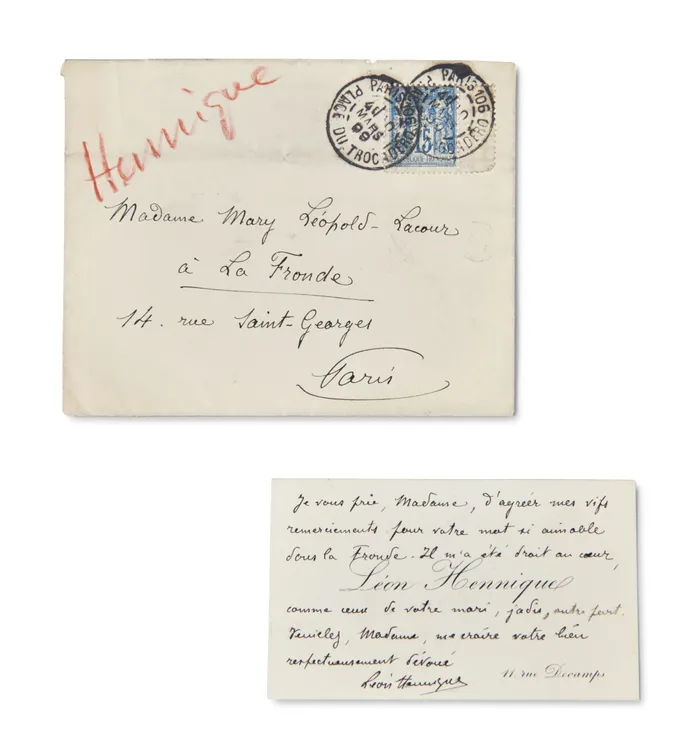 Hennique
PARIS 106
PLACE DU TROCADERO
1
MARS
99
15
Madame Mary Léopold-Lacour
à La Fronde
14. rue Saint-Georges
Paris
Je vous prie, Madame, d'agréer mes vifs
remerciements pour votre mot si aimable
dans la Fronde. Il m'a été droit au cœur,
Léon Hennique
comme ceux de votre mari, jadis, autre part.
Veuillez, Madame, me croire votre bien
respectueusement dévoué
Léon Hennique
11, rue Decamps